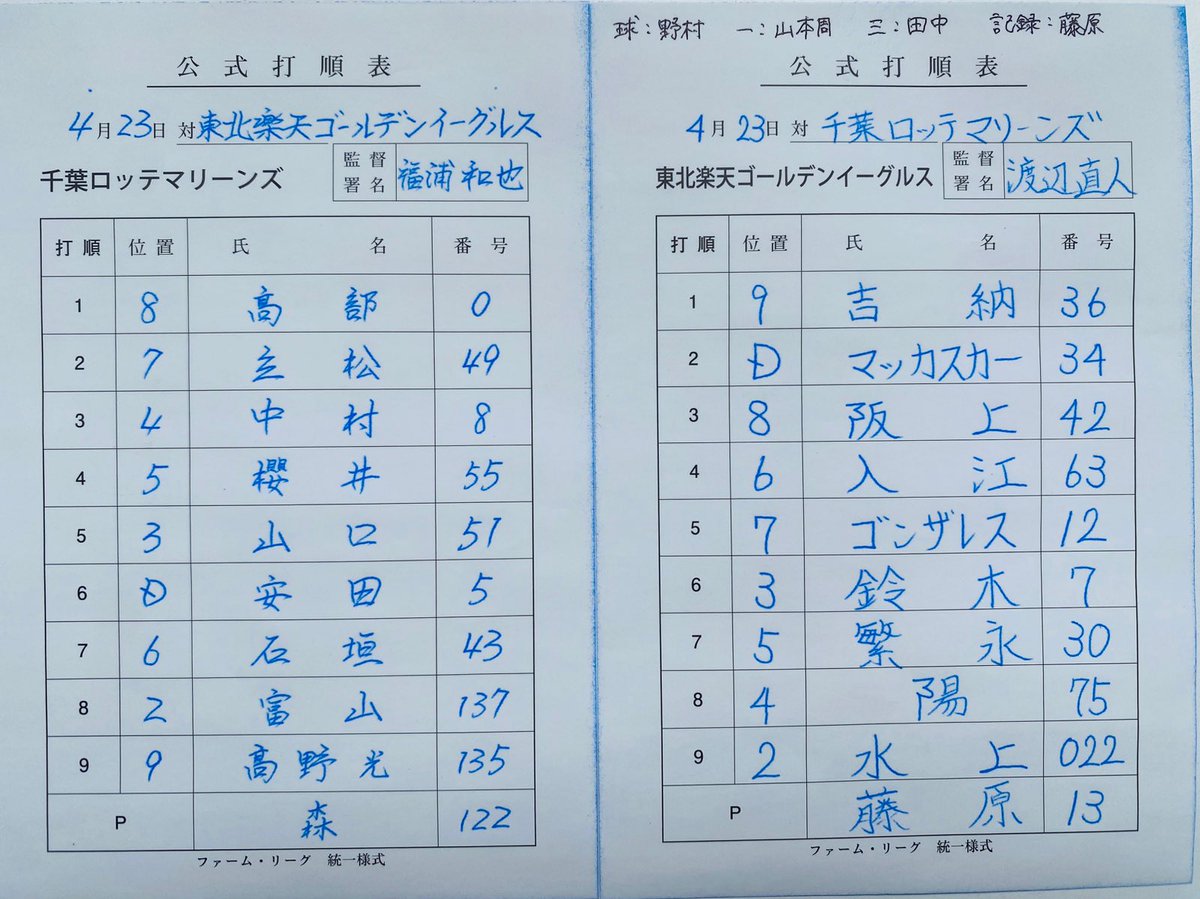 公式打順表
4月23日 対東北楽天ゴールデンイーグルス
千葉ロッテマリーンズ 監督署名 福浦和也
打順 位置 氏名 番号
1 8 高部 0
2 7 立松 49
3 4 中村 8
4 5 櫻井 55
5 3 山口 51
6 D 安田 5
7 6 石垣 43
8 2 富山 137
9 9 高野光 135
P 森 122
ファーム・リーグ 統一様式
球:野村 一:山本周 三:田中 記録:藤原
公式打順表
4月23日 対 千葉ロッテマリーンズ
東北楽天ゴールデンイーグルス 監督署名 渡辺直人
打順 位置 氏名 番号
1 9 吉納 36
2 D マッカスカー 34
3 8 阪上 42
4 6 入江 63
5 7 ゴンザレス 12
6 3 鈴木 7
7 5 繁永 30
8 4 陽 75
9 2 水上 022
P 藤原 13
ファーム・リーグ 統一様式